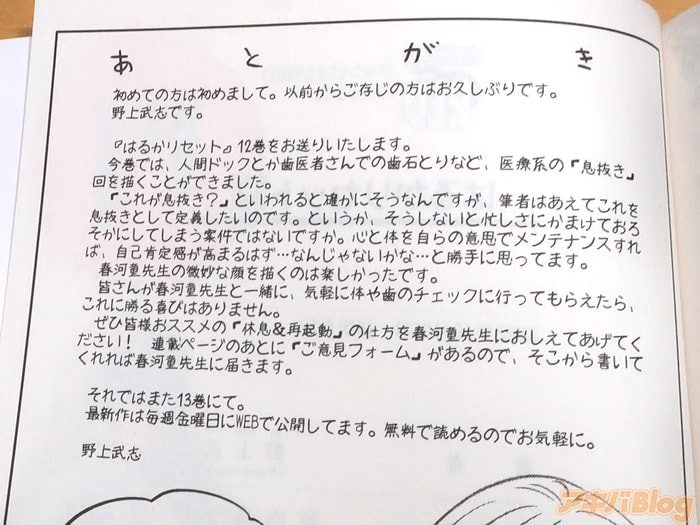 あとがき
初めての方は初めまして。以前からご存じの方はお久しぶりです。
野上武志です。
『はるかリセット』12巻をお送りいたします。
今巻では、人間ドックとか歯医者さんでの歯石とりなど、医療系の『息抜き』
回を描くことができました。
「これが息抜き?」といわれると確かにそうなんですが、筆者はあえてこれを
息抜きとして定義したいのです。というか、そうしないと忙しさにかまけておろ
そかにしてしまう案件ではないですか。心と体を自らの意思でメンテナンスすれ
ば、自己肯定感が高まるはず…なんじゃないかな…と勝手に思ってます。
春河童先生の微妙な顔を描くのは楽しかったです。
皆さんが春河童先生と一緒に、気軽に体や歯のチェックに行ってもらえたら、
これに勝る喜びはありません。
ぜひ皆様おススメの『休息&再起動』の仕方を春河童先生におしえてあげてく
ださい! 連載ページのあとに『ご意見フォーム』があるので、そこから書いて
くれれば春河童先生に届きます。
それではまた13巻にて。
最新作は毎週金曜日にWEBで公開してます。無料で読めるのでお気軽に。
野上武志
アキバBlog